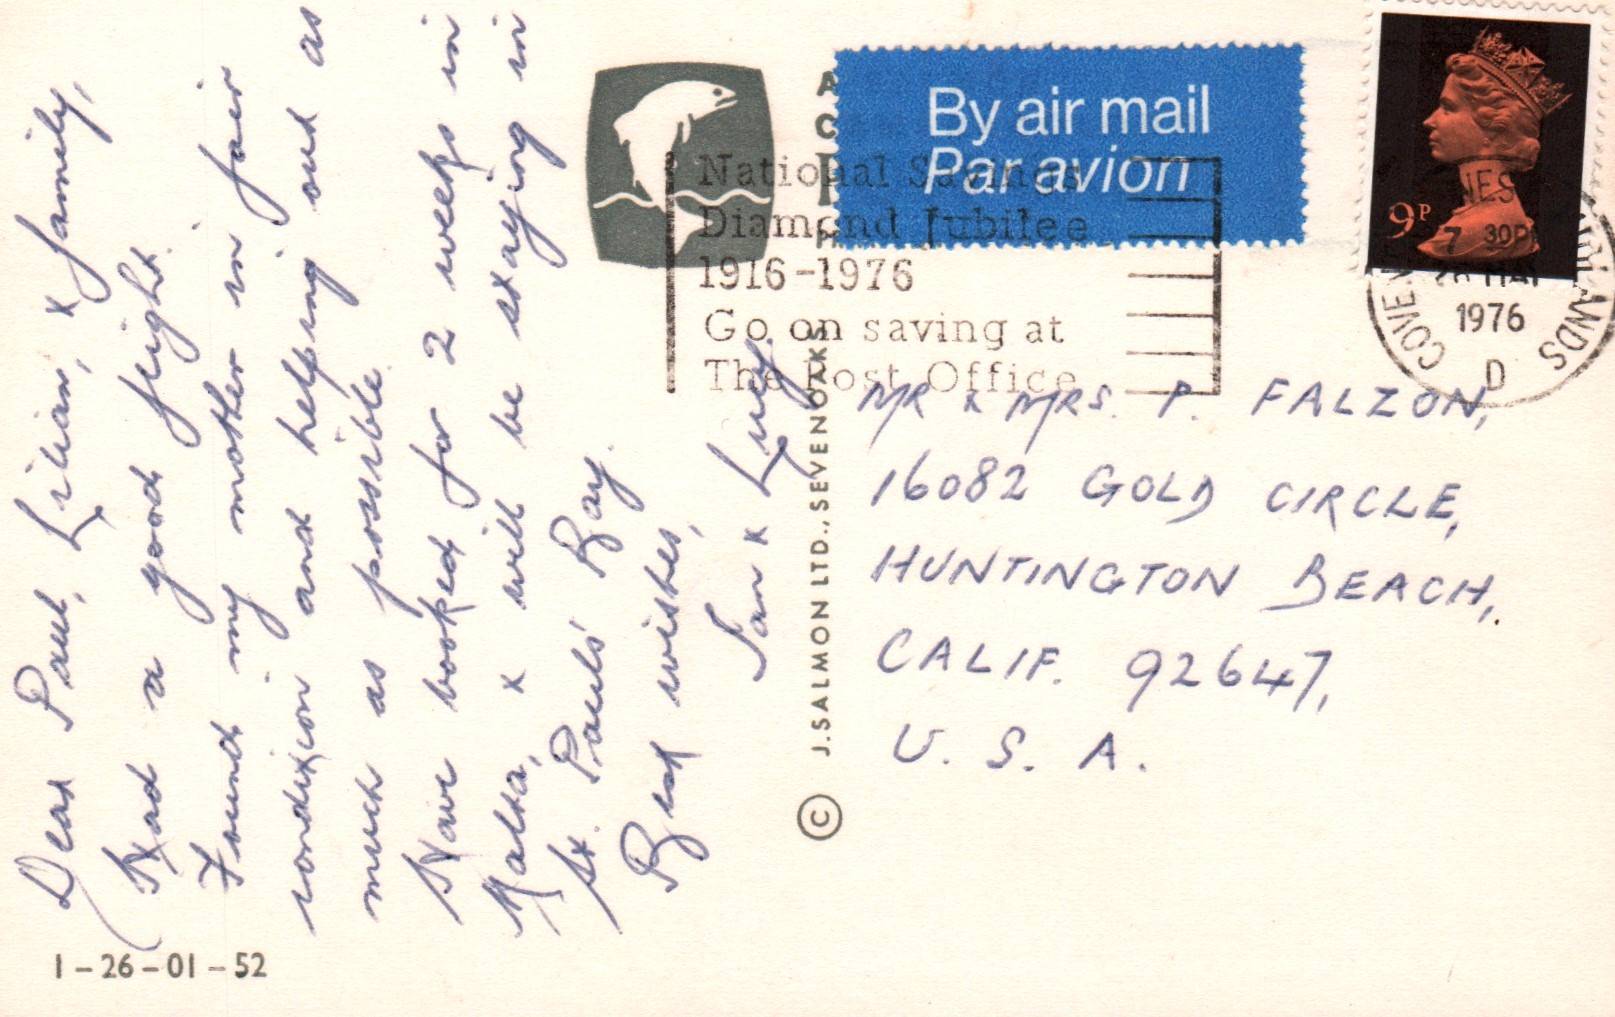 Dear Paul, Lilian, & family,
Had a good flight.
Found my mother in fair
condition and helping out as
much as possible.
Have booked for 2 weeks in
Malta, & will be staying in
St. Paul's Bay.
Best wishes,
& Lucy.
1-26-01-52
© J. SALMON LTD., SEVENOAKS
By air mail
Par avion
National Savings
Diamond Jubilee
1916-1976
Go on saving at
The Post Office
9P
1976
D
MR & MRS. P. FALZON,
16082 GOLD CIRCLE,
HUNTINGTON BEACH,
CALIF. 92647,
U. S. A.